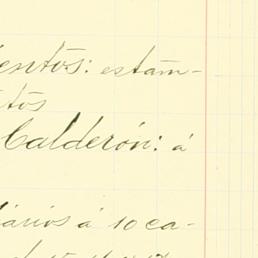 entos: estam-
tos
Calderón: á
arios á 10 ca-